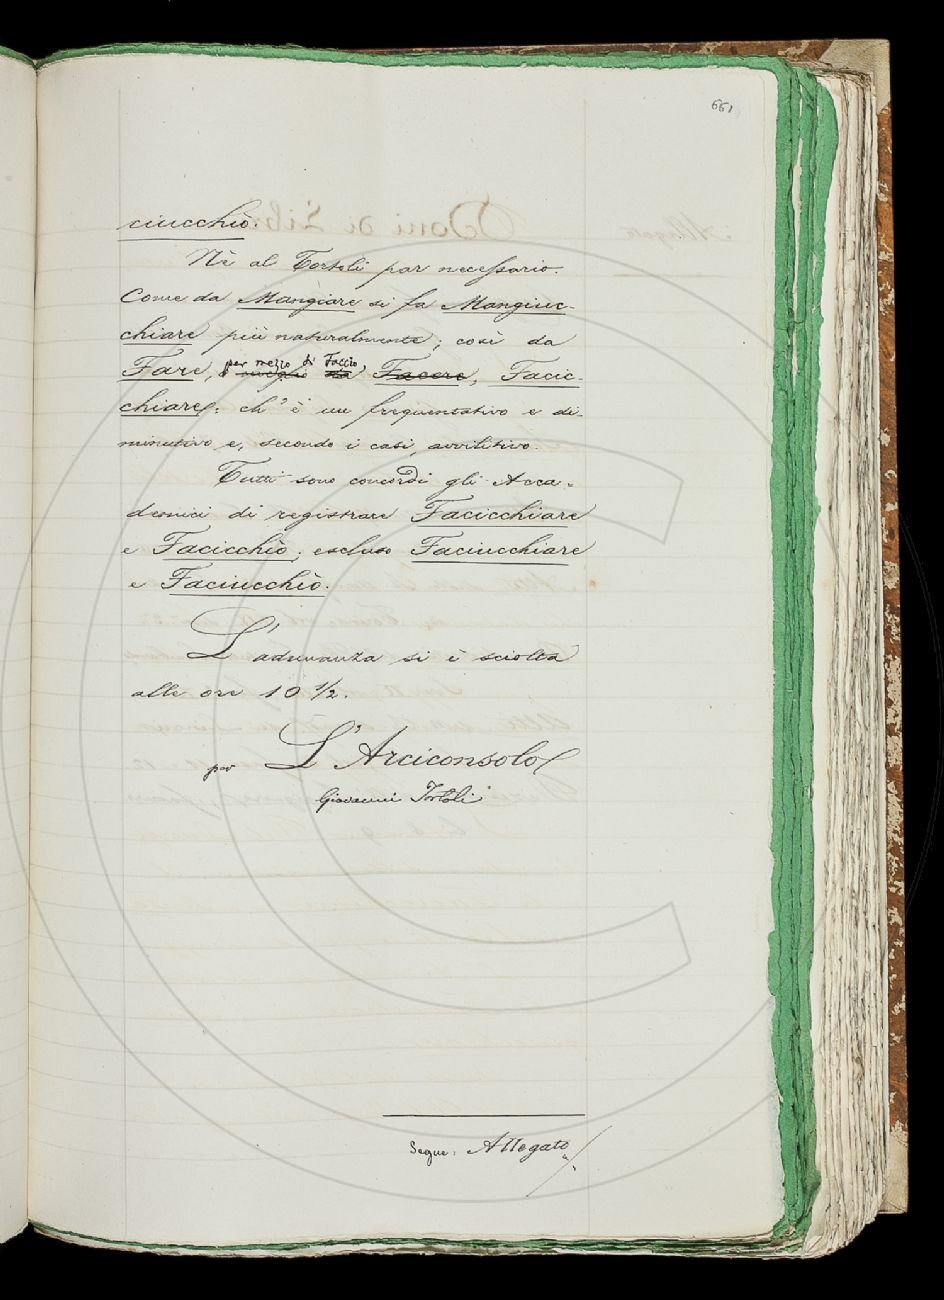 661
ciucchiò.
Nè al Tortoli par necessario.
Come da Mangiare si fa Mangiuc-
chiare più naturalmente; così da
per mezzo di Faccio,
Fare, o meglio da Facere, Facic-
chiare: ch'è un frequentativo e di-
minutivo e, secondo i casi, avvilitivo.
Tutti sono concordi gli Acca-
demici di registrare Facicchiare
e Facicchiò; escluso Faciucchiare
e Faciucchiò.
L'adunanza si è sciolta
alle ore 10 1/2.
per L'Arciconsolo
Giovanni Tortoli
Segue: Allegato